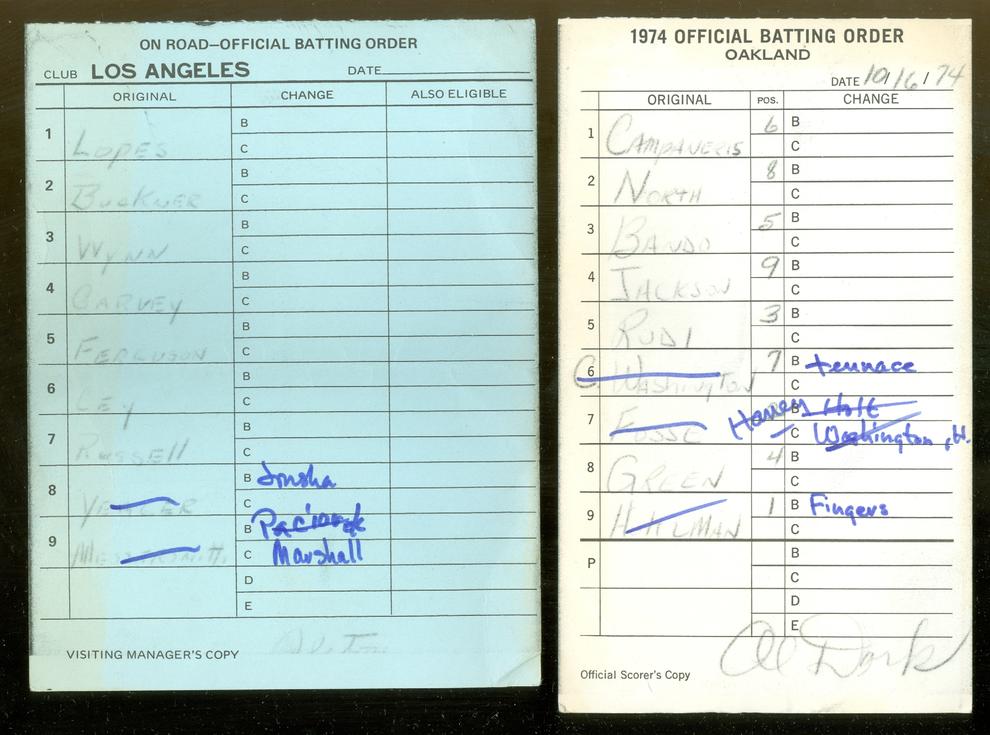 ON ROAD—OFFICIAL BATTING ORDER
CLUB LOS ANGELES DATE
ORIGINAL CHANGE ALSO ELIGIBLE
1 LOPES B
C
2 BUCKNER B
C
3 WYNN B
C
4 GARVEY B
C
5 FERGUSON B
C
6 CEY B
C
7 RUSSELL B
C
8 YEAGER B Joshua
C
9 MESSERSMITH B Paciorek
C Marshall
D
E
VISITING MANAGER'S COPY
1974 OFFICIAL BATTING ORDER
OAKLAND
DATE 10/16/74
ORIGINAL POS. CHANGE
1 CAMPANERIS 6 B
C
2 NORTH 8 B
C
3 BANDO 5 B
C
4 JACKSON 9 B
C
5 RUDI 3 B
C
6 C. WASHINGTON 7 B tennace
C
7 FOSSE Haney B Holt
C Washington, H.
8 GREEN 4 B
C
9 HOLTZMAN 1 B Fingers
C
P B
C
D
E
Al Dark
Official Scorer's Copy